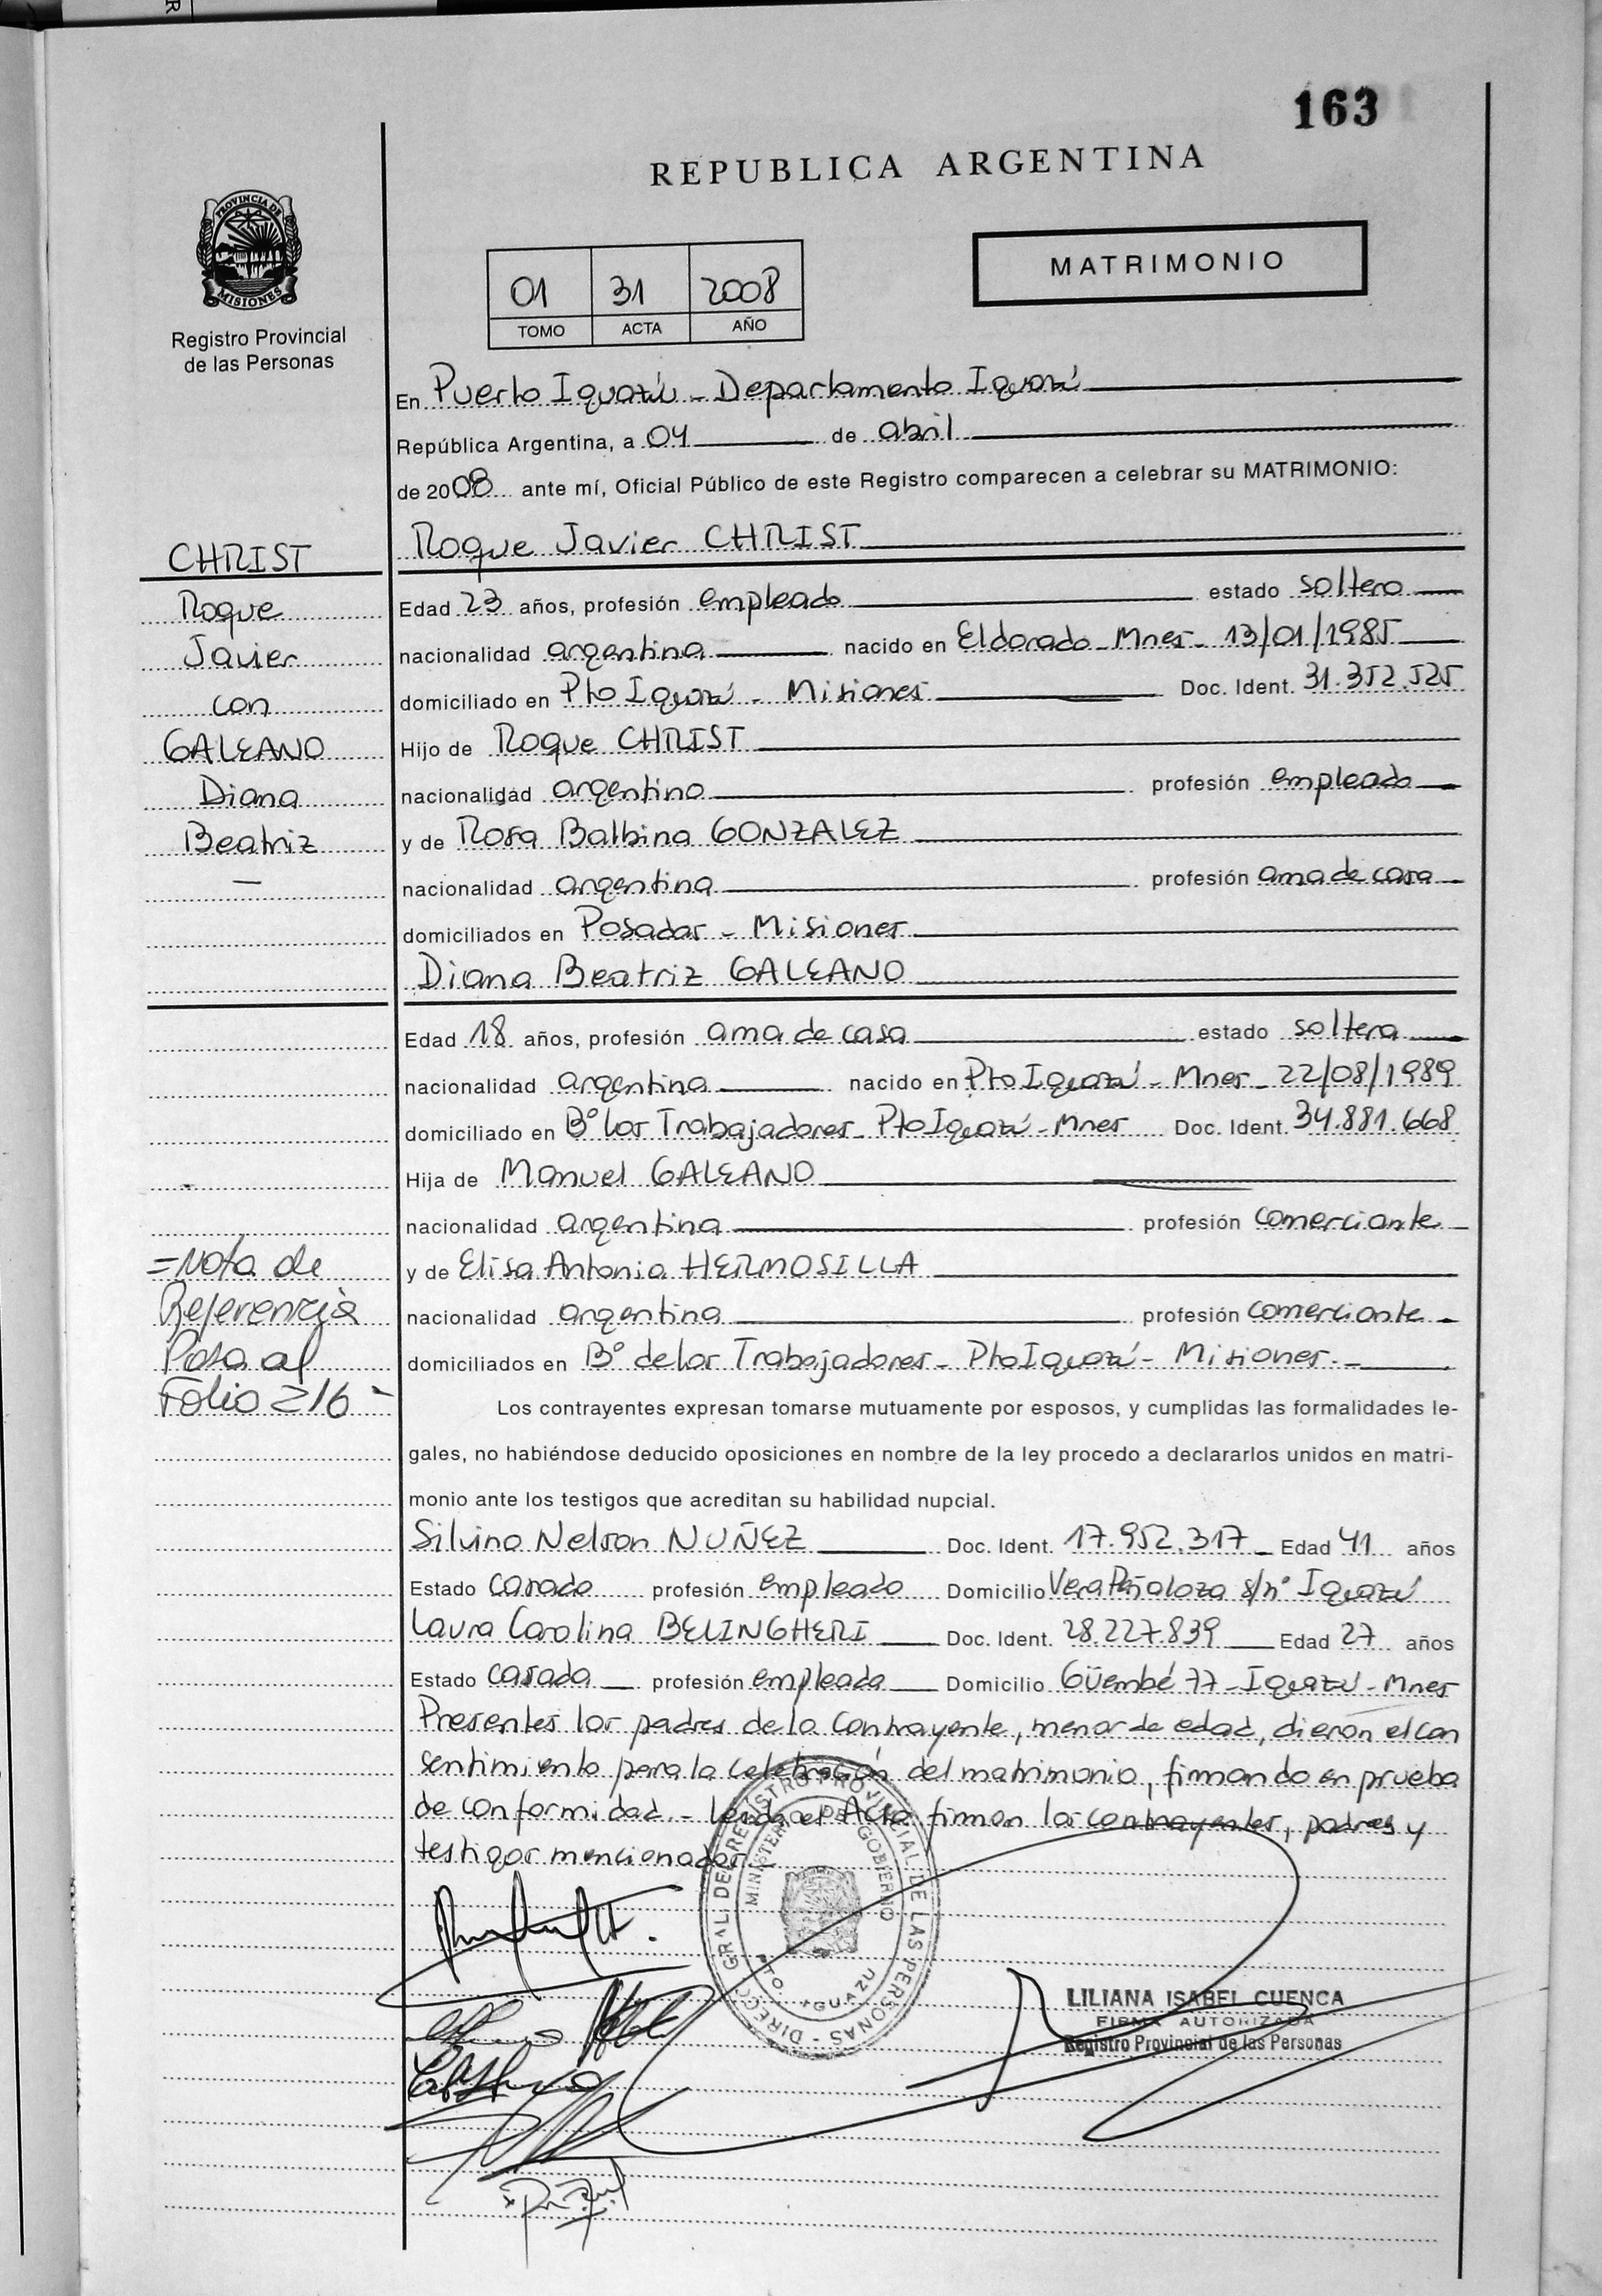 163
REPUBLICA ARGENTINA
PROVINCIA DE
MISIONES
Registro Provincial
de las Personas
01 31 2008
TOMO ACTA AÑO
MATRIMONIO
En Puerto Iguazú - Departamento Iguazú
República Argentina, a 04 de abril
de 2008 ante mí, Oficial Público de este Registro comparecen a celebrar su MATRIMONIO:
CHRIST
Roque
Javier
con
GALEANO
Diana
Beatriz
—
Roque Javier CHRIST
Edad 23 años, profesión empleado estado soltero
nacionalidad argentina nacido en Eldorado - Mnes - 13/01/1985
domiciliado en Pto Iguazú - Misiones Doc. Ident. 31.352.525
Hijo de Roque CHRIST
nacionalidad argentino profesión empleado
y de Rosa Balbina GONZALEZ
nacionalidad argentina profesión ama de casa
domiciliados en Posadas - Misiones
Diana Beatriz GALEANO
Edad 18 años, profesión ama de casa estado soltera
nacionalidad argentina nacido en Pto Iguazú - Mnes - 22/08/1989
domiciliado en B° los Trabajadores - Pto Iguazú - Mnes Doc. Ident. 34.881.668
Hija de Manuel GALEANO
nacionalidad argentina profesión comerciante
y de Elisa Antonia HERMOSILLA
nacionalidad argentina profesión comerciante
domiciliados en B° de los Trabajadores - Pto Iguazú - Misiones.-
=Nota de
Referencia
Pasa al
Folio 216-
Los contrayentes expresan tomarse mutuamente por esposos, y cumplidas las formalidades le-
gales, no habiéndose deducido oposiciones en nombre de la ley procedo a declararlos unidos en matri-
monio ante los testigos que acreditan su habilidad nupcial.
Silvino Nelson NUÑEZ Doc. Ident. 17.952.317 Edad 41 años
Estado casado profesión empleado Domicilio Vera Peñaloza s/n° Iguazú
Laura Carolina BELINGHERI Doc. Ident. 28.227.839 Edad 27 años
Estado casada profesión empleada Domicilio Güembé 77 - Iguazú - Mnes
Presentes los padres de la contrayente, menor de edad, dieron el con
sentimiento para la celebración del matrimonio, firmando en prueba
de conformidad.- Leida el Acta firman los contrayentes, padres y
testigos mencionados.
DIRECC. GRAL. DEL REGISTRO PROVINCIAL DE LAS PERSONAS
MINISTERIO DE GOBIERNO
PTO. IGUAZU
LILIANA ISABEL CUENCA
FIRMA AUTORIZADA
Registro Provincial de las Personas